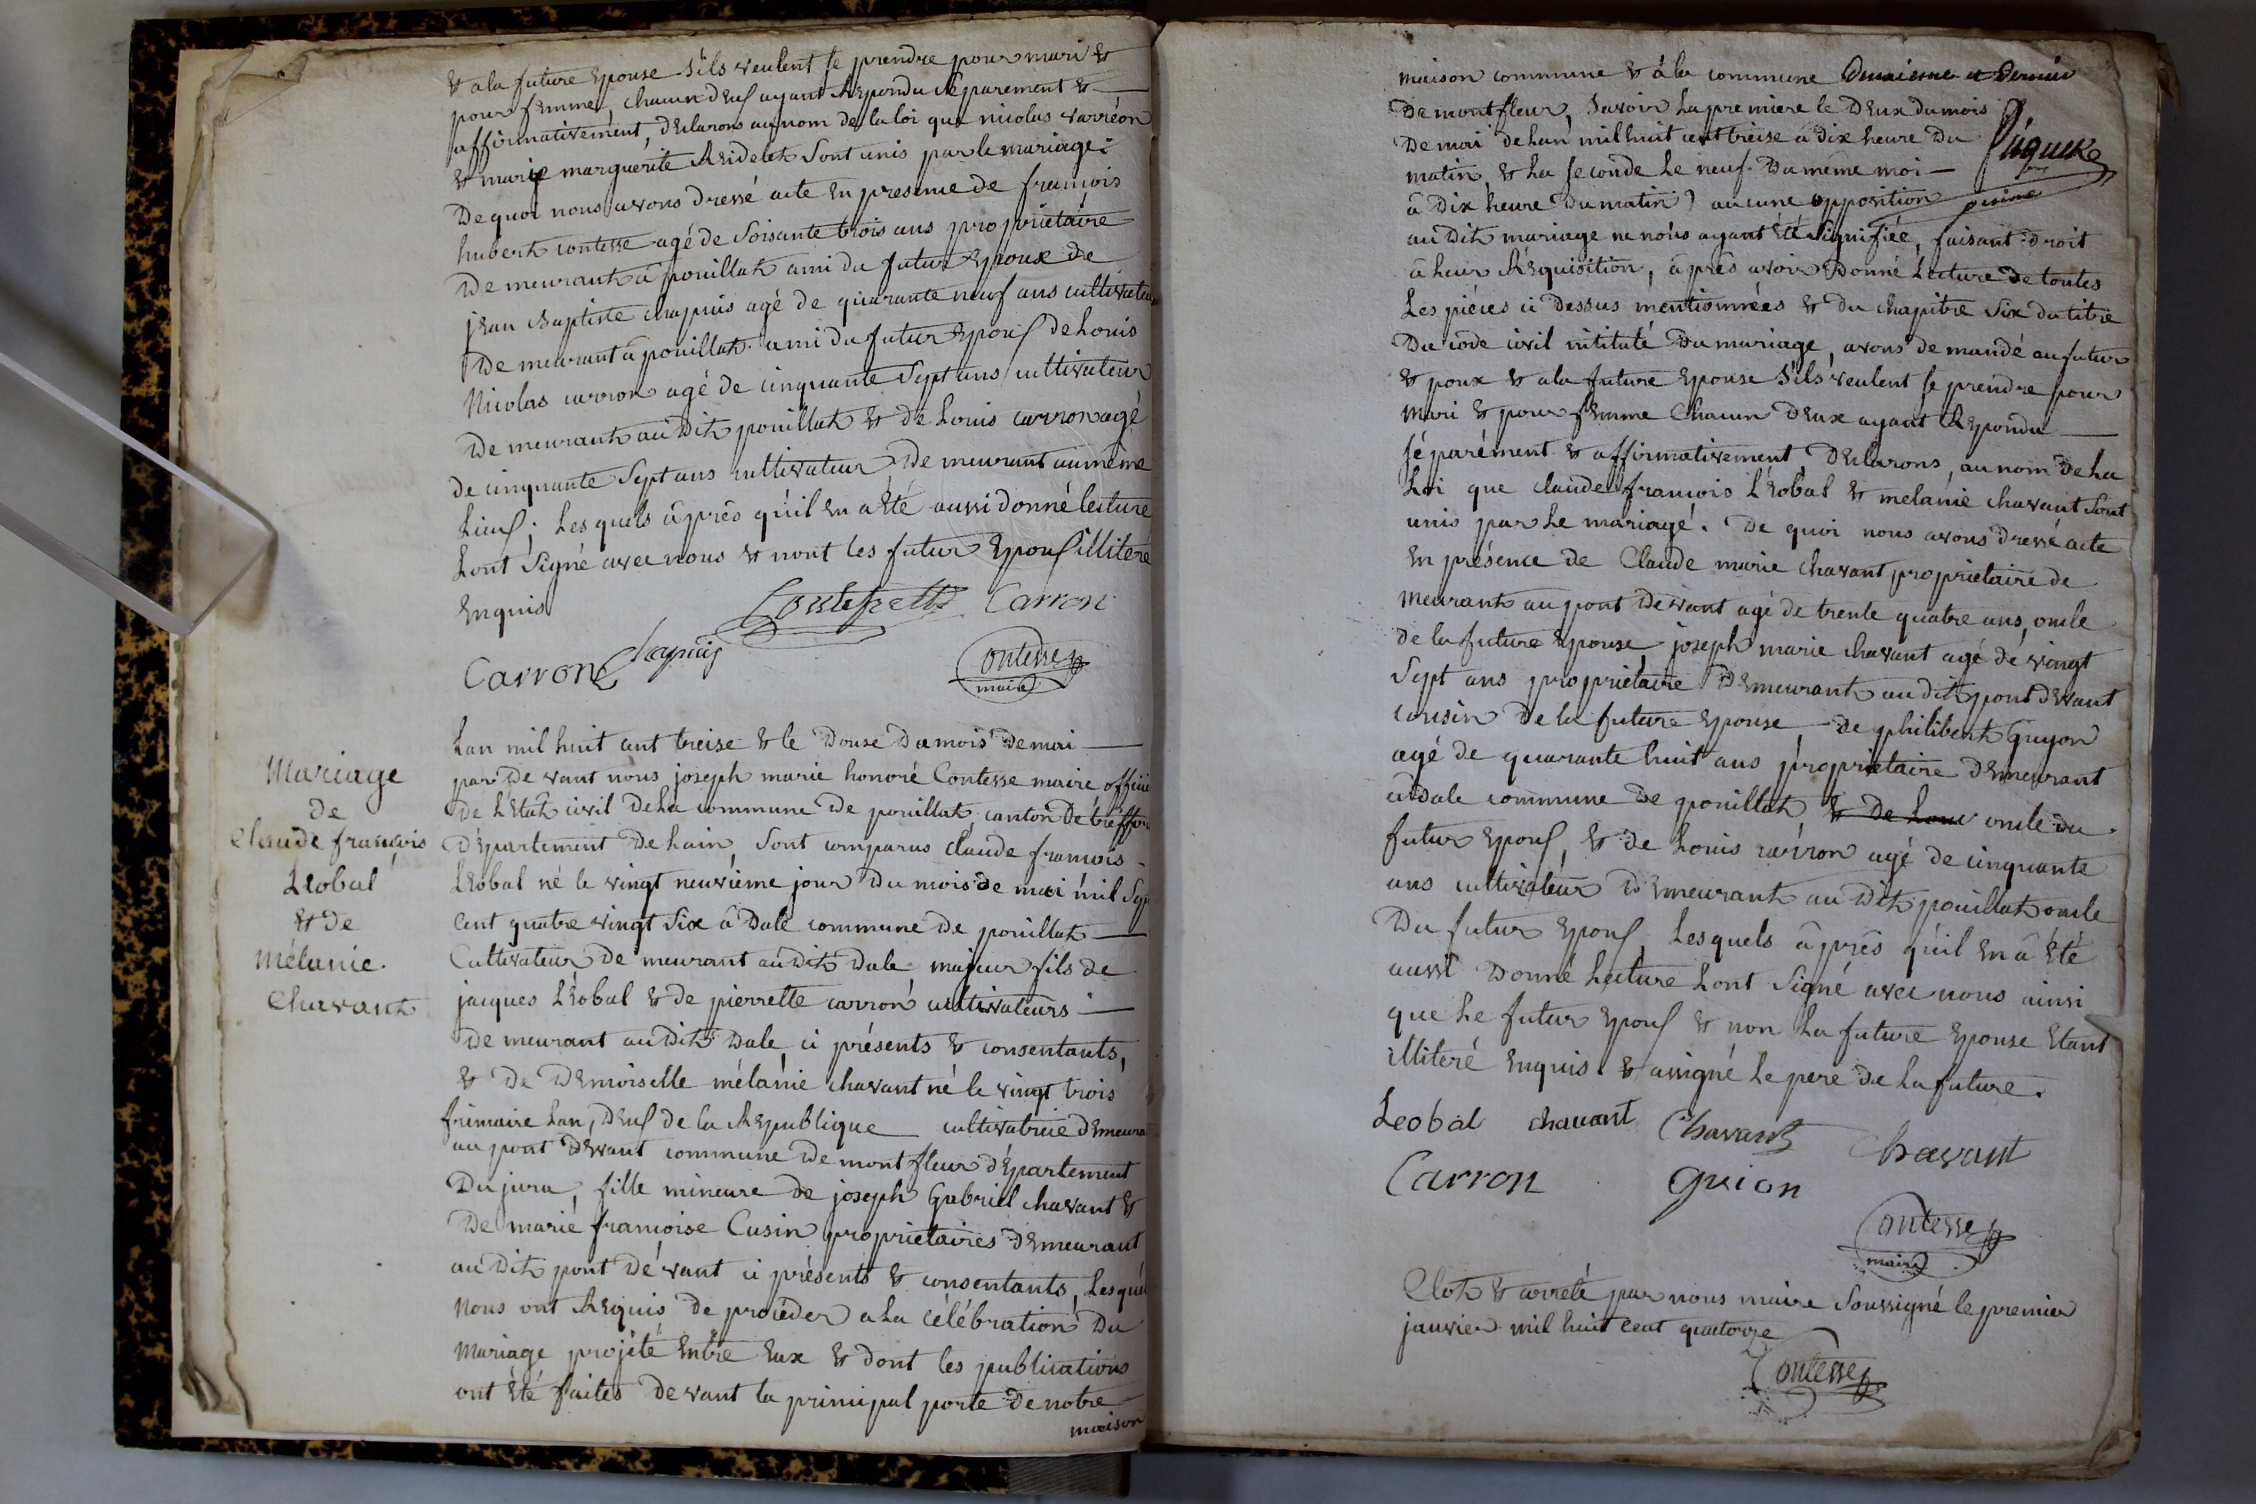 & a la future Epouse s'ils veulent se prendre pour mari &
pour femme, chacun d'eux ayant Repondu séparement &
affirmativement, déclarons au nom de la loi que nicolas carréon
& marie marguérite Ridelet sont unis par le mariage:
De quoi nous avons dressé acte En presence de francois
hubert contesse agé de soisante trois ans proprietaire
De meurant â pouillat ami du futur Epoux De
jean Baptiste chapuis agé de quarante neuf ans cultivateur
De meurant â pouillat ami du futur Epoux de Louis
Nicolas carron agé de cinquante Sept ans cultivateur
De meurant au Dit pouillat & de Louis carron agé
de cinquante Sept ans cultivateur De meurant au même
Lieux; Les quels âprês qu'il En a Eté aussi donné lecture
Lont Signé avec nous & nont les futur Epoux illiteré
Enquis
Carron
Carron Chapuis
Contesse
maire
Mariage
de
Claude francois
Léobal
& de
Mélanie
Chavant
Lan mil huit cent treise & le Douse Du mois De mai
par De vant nous joseph marie honoré Contesse maire officie
De L'Etat civil De La commune De pouillat canton De treffor
Département De Lain, Sont comparus claude francois
Léobal né le vingt neuvieme jour Du mois de mai mil Sep
Cent quatre vingt Six â Dale commune De pouillat
Cultivateur De meurant au Dit Dale majeur fils de
jacques Léobal & de pierrette carron cultivateurs
De meurant au Dit Dale ci présents & consentants,
& De Demoiselle mélanie chavant né le vingt trois
frimaire Lan, Deux de la Republique cultivatrice Demeura
au pont Devant commune De montfleur département
Du jura, fille mineure de joseph Gabriel chavant &
De marie francoise Cusin proprietaires Demeurant
au Dit pont Dévant ci présents & consentants, Lesqué
Nous ont Requis de procéder a La célébration Du
Mariage projeté Entre Eux & dont les publications
ont Eté faites devant la principal porte De notre
maison
maison commune & â la commune Deuxieme et Dernier
De montfleur, Savoir La premiere le Deux du mois
De mai de Lan mil huit cent treise â Dix heure Du
matin, & La seconde Le neuf Du même moi
â Dix heure Du matin) aucune opposition
au Dit mariage ne nous ayant Eté Signifiée, faisant Droit
â Leur Réquisition, âprês avoir Donné Lecture De toutes
Les piéces ci Dessus mentionnées & du chapitre Six du titre
Du code civil intitulé Du mariage, avons de mandé au futur
Epoux & a la future Epouse s'ils veulent se prendre pour
Mari & pour femme Chacun D'Eux ayant Répondu
séparément & affirmativement, Déclarons, au nom De La
Loi que claude francois Léobal & melanie chavant Sont
unis par Le mariagé. De quoi nous avons dressé acte
En présence de Claude marie chavant, proprietaire de
Meurant au pont Devant agé de trente quatre ans, oncle
de la future Epouse joseph marie chavant agé dé vingt
Sept ans propriétaire Demeurant au dit pont Devant
cousin De la future Epouse, de philibert Guyon
agé de quarante huit ans proprietaire Demeurant
â Dale commune De pouillat, & De Loui oncle du
futur Epoux, & de Louis carron agé de cinquante
ans cultivateur Demeurant au Dit pouillat oncle
Du futur Epoux, Lesquels âprês qu'il En â Eté
aussi Donné Lecture Lont Signé avec nous ainsi
que Le futur Epoux & non La future Epouse Etant
illiteré Enquis. & a signé Le pere De La future.
Leobal chavant Chavant Chavant
Carron guion
Contesse
maire
Clot & arreté par nous maire Soussigné le premier
janvier mil huit cent quatorze
Contesse